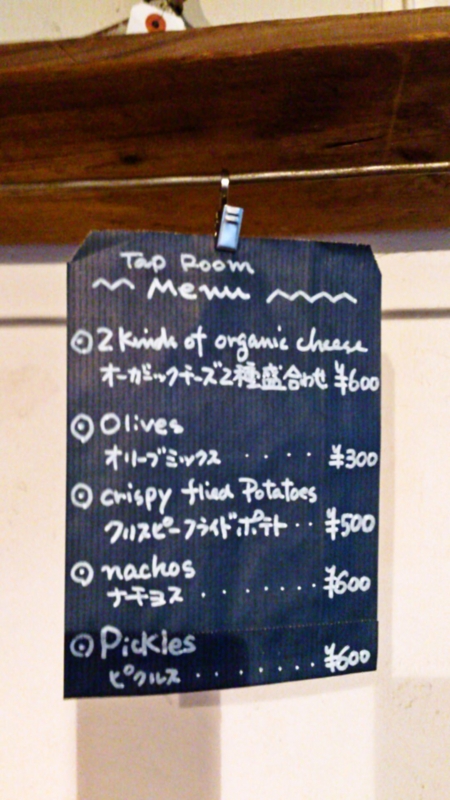 Tap Room
Menu
2 kinds of organic cheese
オーガニックチーズ2種盛合わせ ¥600
Olives
オリーブミックス ・・・・ ¥300
crispy fried Potatoes
クリスピーフライドポテト ・・ ¥500
nachos
ナチョス ・・・・・・・ ¥600
Pickles
ピクルス ・・・・・・・ ¥600